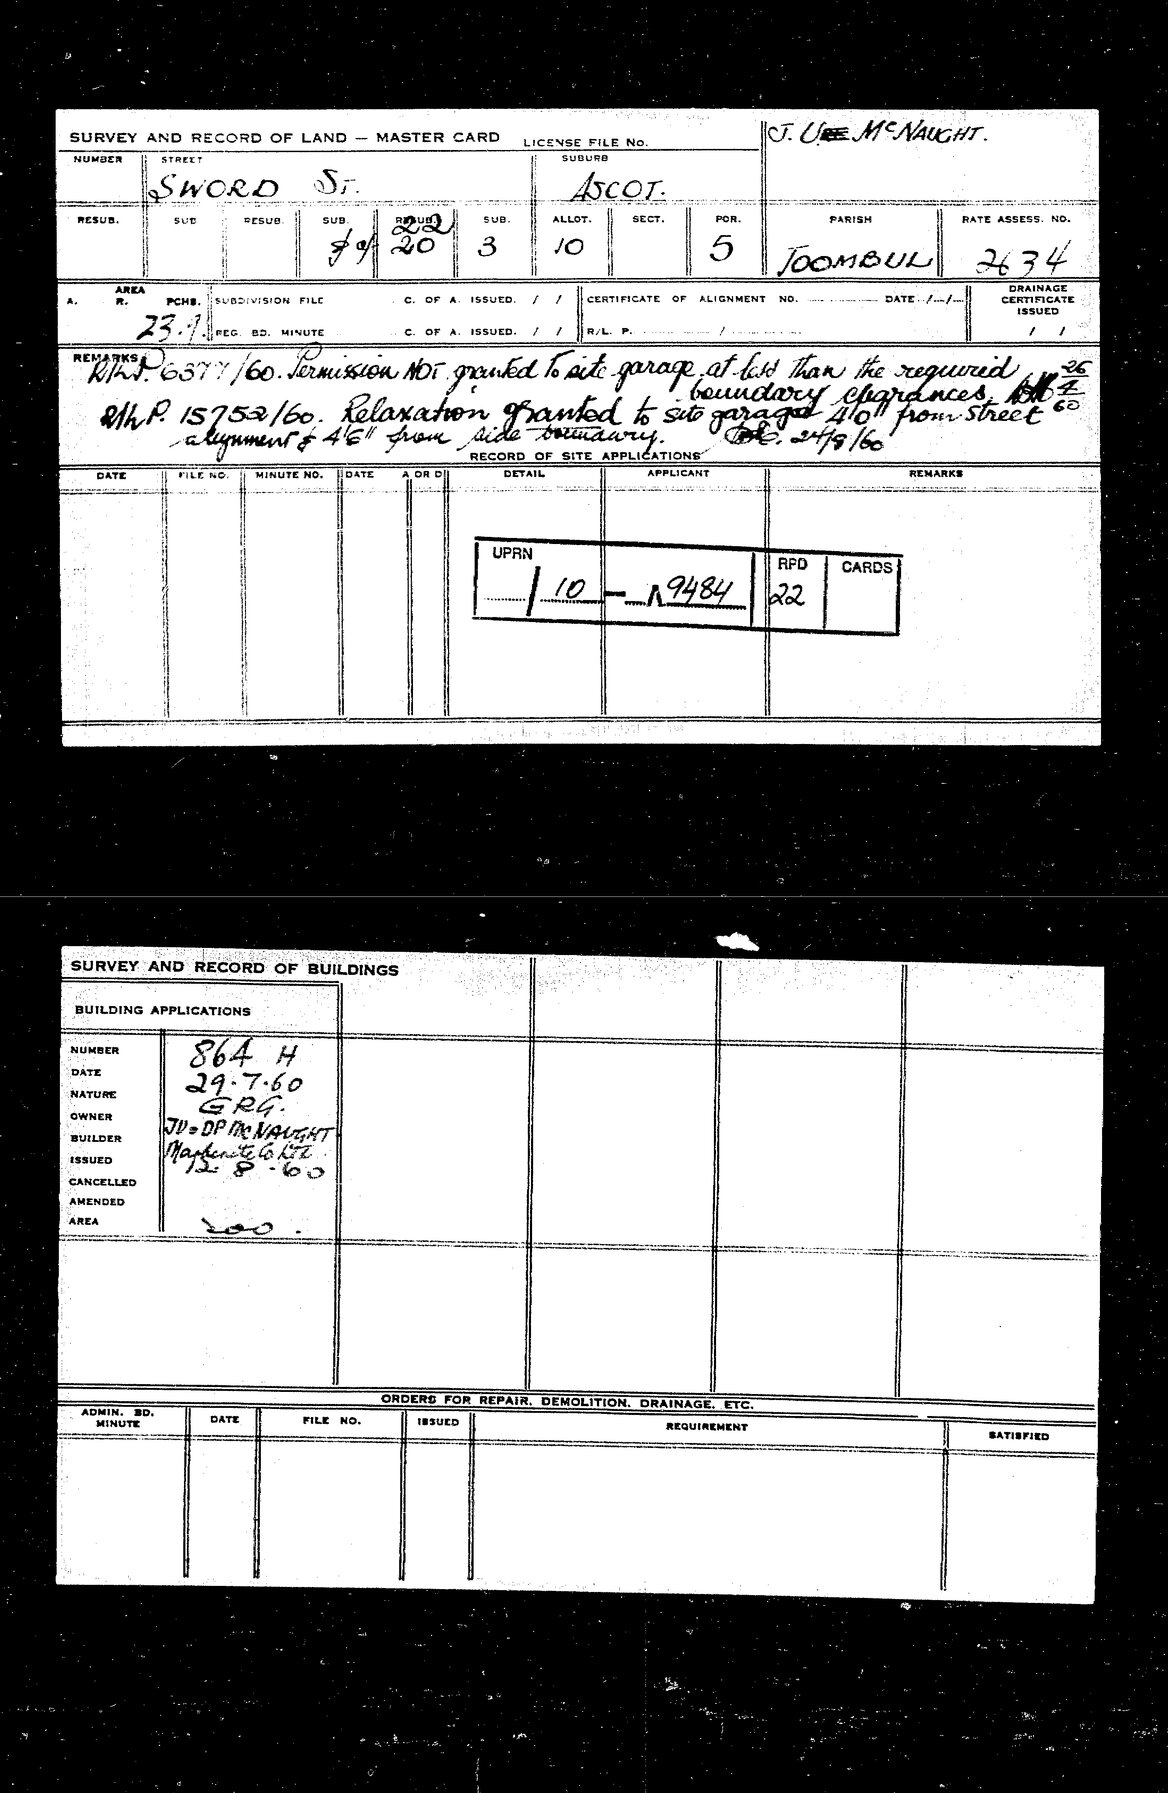 SURVEY AND RECORD OF LAND — MASTER CARD LICENSE FILE NO.
J. U. McNAUGHT.
NUMBER STREET SUBURB
SWORD ST. ASCOT.
RESUB. SUB RESUB. SUB. RESUB. SUB. ALLOT. SECT. POR. PARISH RATE ASSESS. NO.
22
20 3 10 5 TOOMBUL 2634
AREA
A. R. PCHS. SUBDIVISION FILE C. OF A. ISSUED. / / CERTIFICATE OF ALIGNMENT NO. DATE / / DRAINAGE CERTIFICATE ISSUED
23.9. REG. BD. MINUTE C. OF A. ISSUED. / / R/L. P. / / /
REMARKS
6377/60. Permission NOT granted to site garage at less than the required
boundary clearances. 26/4/60
15752/60. Relaxation granted to site garage 4'0" from street
alignment & 4'6" from side boundary. 24/8/60
RECORD OF SITE APPLICATIONS
DATE FILE NO. MINUTE NO. DATE A OR D DETAIL APPLICANT REMARKS
UPRN RPD CARDS
/ 10 — 9484 22
SURVEY AND RECORD OF BUILDINGS
BUILDING APPLICATIONS
NUMBER 864 H
DATE 29.7.60
NATURE GRG.
OWNER McNAUGHT
BUILDER Co Ltd
ISSUED 12.8.60
CANCELLED
AMENDED
AREA 200.
ORDERS FOR REPAIR, DEMOLITION, DRAINAGE, ETC.
ADMIN. BD. MINUTE DATE FILE NO. ISSUED REQUIREMENT SATISFIED